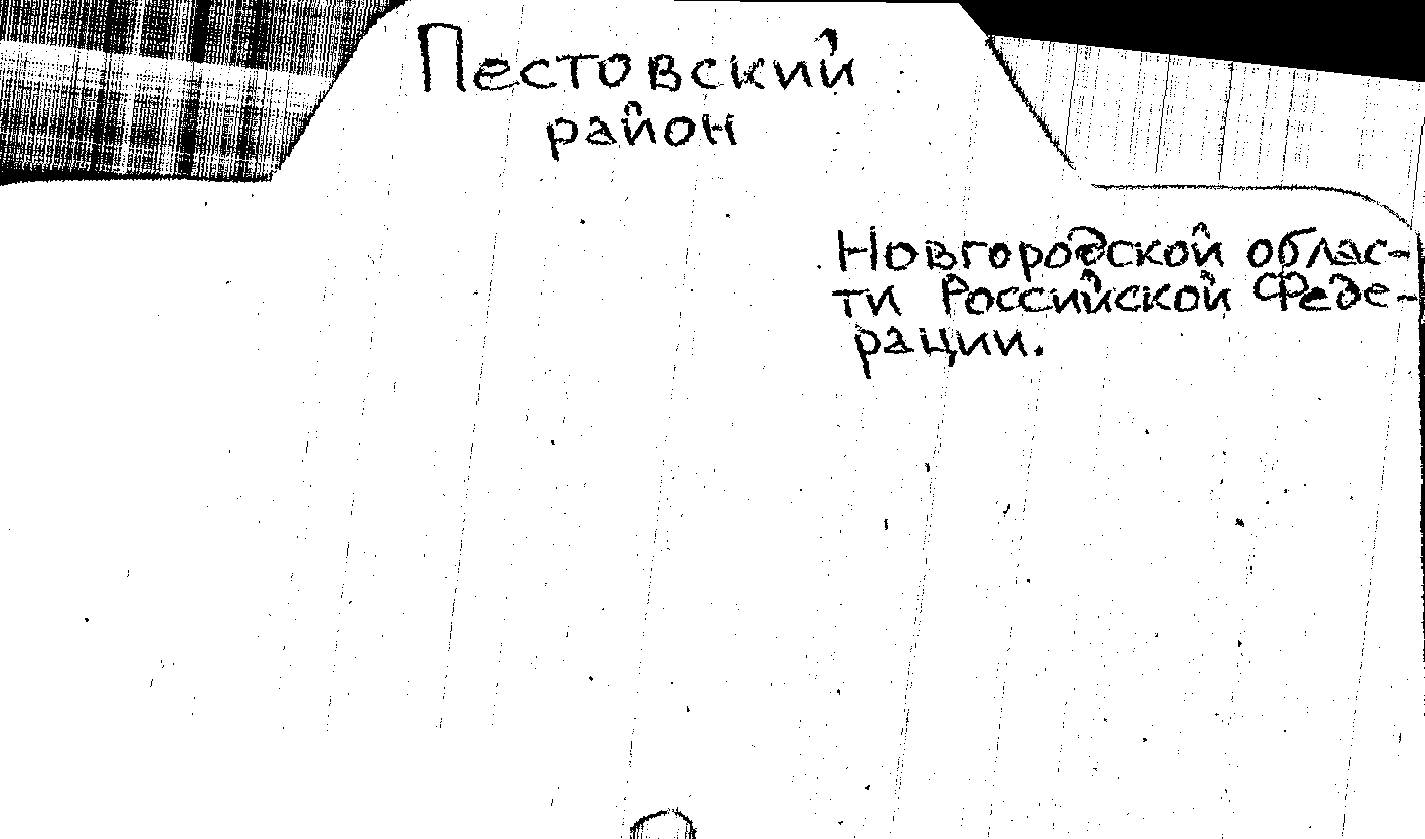 Пестовский
район
Новгородской облас-
ти Российской Феде-
рации.